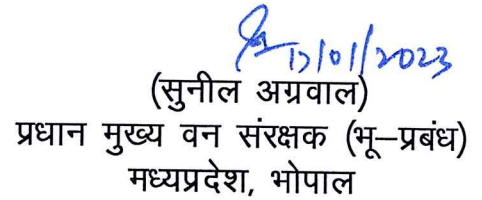 17/01/2023
(सुनील अग्रवाल)
प्रधान मुख्य वन संरक्षक (भू–प्रबंध)
मध्यप्रदेश, भोपाल